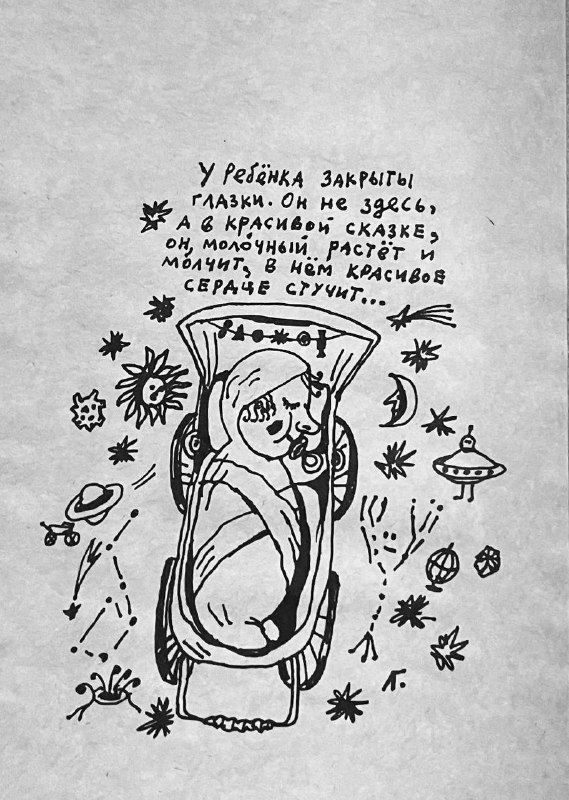 У РЕБЁНКА ЗАКРЫТЫ
ГЛАЗКИ. ОН НЕ ЗДЕСЬ,
А В КРАСИВОЙ СКАЗКЕ,
ОН, МОЛОЧНЫЙ РАСТЁТ И
МОЛЧИТ, В НЁМ КРАСИВОЕ
СЕРДЦЕ СТУЧИТ...
Г.